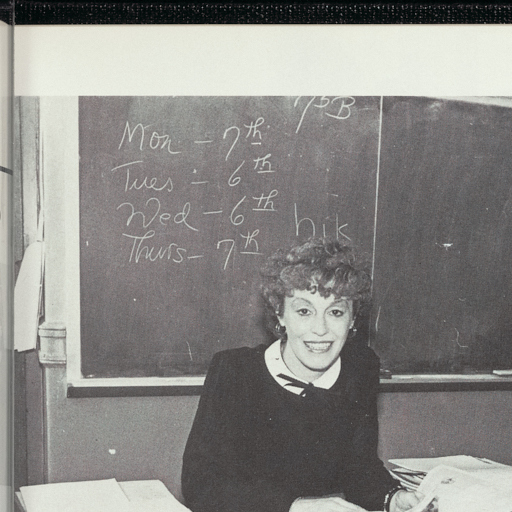 7B
Mon – 7th
Tues – 6th
Wed – 6th
Thurs – 7th
hik